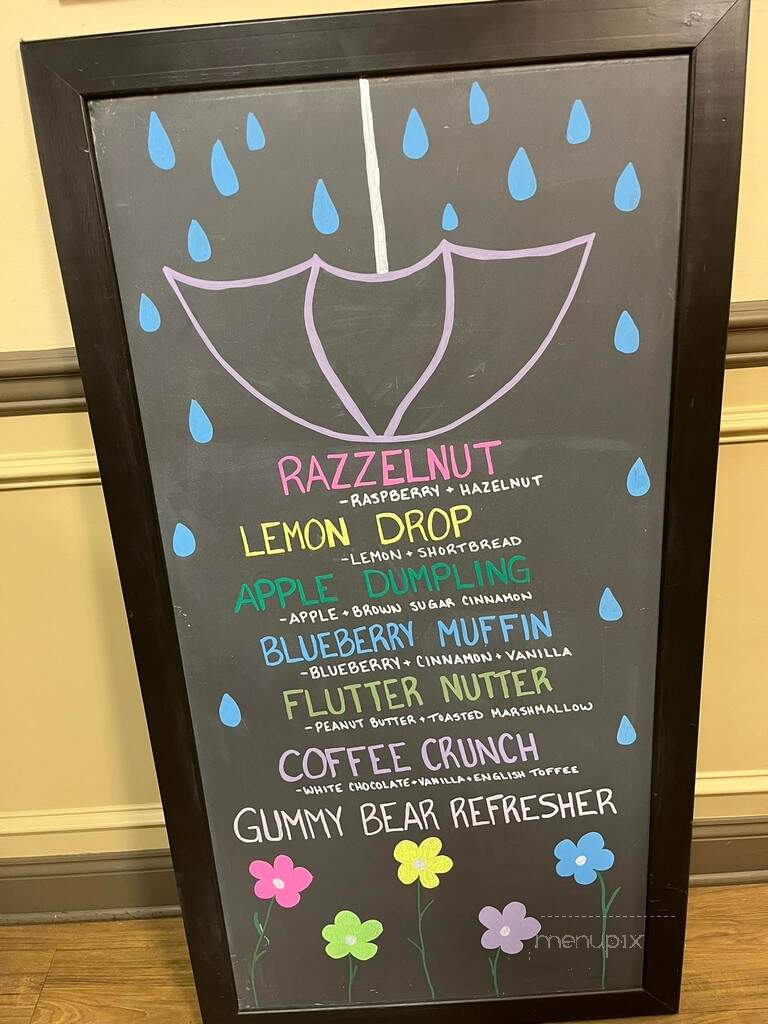 RAZZELNUT
-RASPBERRY + HAZELNUT
LEMON DROP
-LEMON + SHORTBREAD
APPLE DUMPLING
-APPLE + BROWN SUGAR CINNAMON
BLUEBERRY MUFFIN
-BLUEBERRY + CINNAMON + VANILLA
FLUTTER NUTTER
-PEANUT BUTTER + TOASTED MARSHMALLOW
COFFEE CRUNCH
-WHITE CHOCOLATE + VANILLA + ENGLISH TOFFEE
GUMMY BEAR REFRESHER
menupix